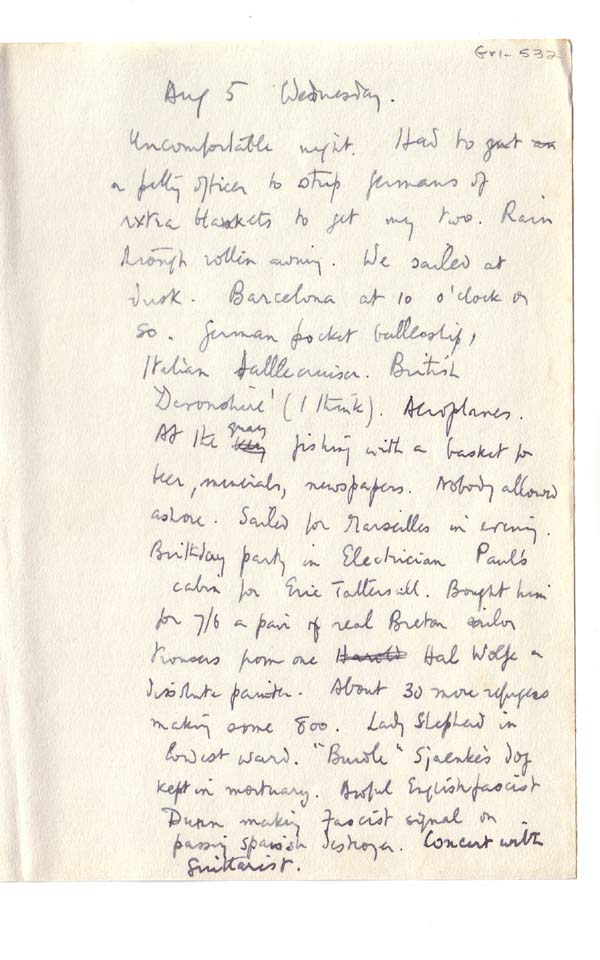 Gr1-532
Aug 5 Wednesday.
Uncomfortable night. Had to get an
a petty officer to strip Germans of
extra blankets to get my two. Rain
through rollin awning. We sailed at
dusk. Barcelona at 10 o'clock or
so. German pocket battleship,
Italian battlecruiser. British
'Devonshire' (I think). Aeroplanes.
At the quay fishing with a basket for
beer, minerals, newspapers. Nobody allowed
ashore. Sailed for Marseilles in evening.
Birthday party in Electrician Paul's
cabin for Eric Tattersall. Bought him
for 7/6 a pair of real Breton sailor
trousers from one Harold Hal Wolfe a
dissolute painter. About 30 more refugees
making some 800. Lady Shepherd in
lowest ward. "Burdle" Sjaenke's dog
kept in mortuary. Awful English fascist
Dunn making Fascist signal on
passing Spanish destroyer. Concert with
Guitarist.